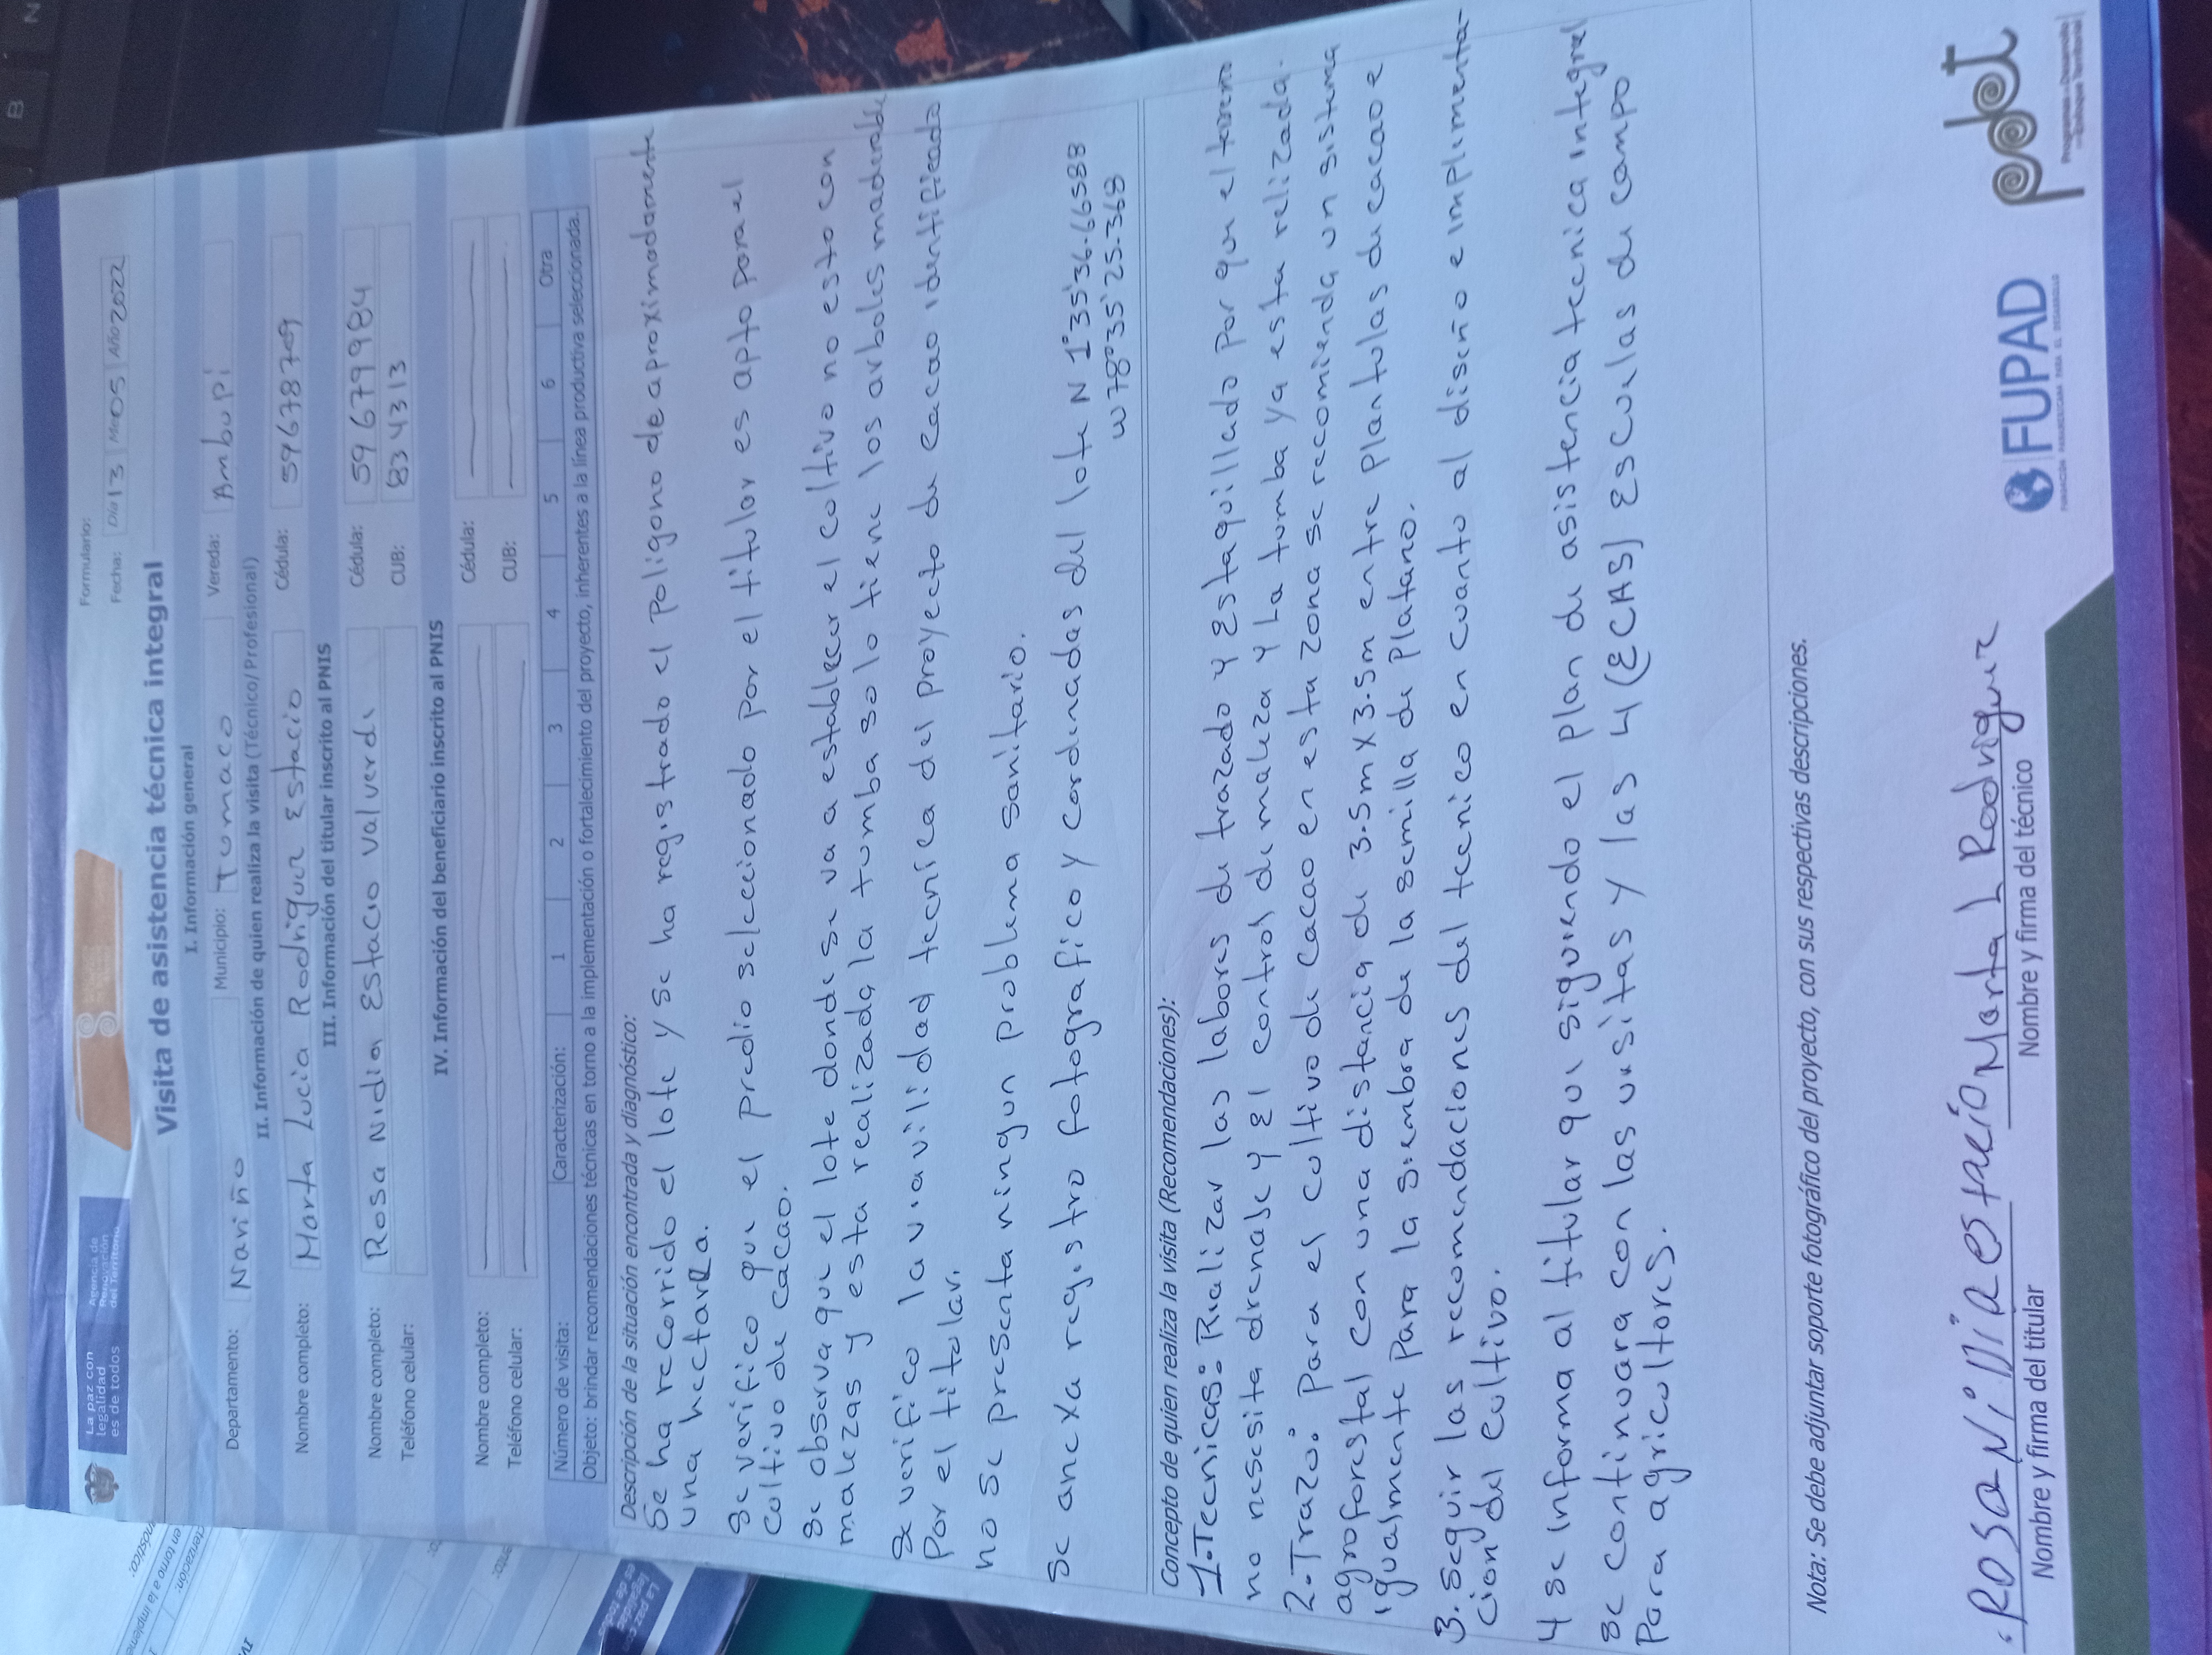 La paz con
legalidad
es de todos
Agencia de
Renovación
del Territorio
Formulario:
Fecha: Día 13 Mes 05 Año 2022
Visita de asistencia técnica integral
I. Información general
Departamento: Nariño Municipio: Tumaco Vereda: Ambupi
II. Información de quien realiza la visita (Técnico/Profesional)
Nombre completo: Marta Lucia Rodriguez Estacio Cédula: 59678709
III. Información del titular inscrito al PNIS
Nombre completo: Rosa Nidia Estacio Valverde Cédula: 59679984
Teléfono celular: CUB: 834313
IV. Información del beneficiario inscrito al PNIS
Nombre completo: Cédula:
Teléfono celular: CUB:
Número de visita: Caracterización: 1 2 3 4 5 6 Otra
Objeto: brindar recomendaciones técnicas en torno a la implementación o fortalecimiento del proyecto, inherentes a la línea productiva seleccionada.
Descripción de la situación encontrada y diagnóstico:
Se ha recorrido el lote y se ha registrado el Poligono de aproximadamente
una hectarea.
Se verifico que el predio seleccionado por el titular es apto para el
cultivo de cacao.
Se observa que el lote donde se va a establecer el cultivo no esto con
malezas y esta realizada la tumba solo tiene los arboles maderable
Se verifico la viavilidad tecnica del proyecto de cacao identificado
Por el titular.
no se presenta ningun problema sanitario.
Se anexa registro fotografico y cordenadas del lote N 1°35'36.66588
W 78°35'25.368
Concepto de quien realiza la visita (Recomendaciones):
1-Tecnicas: Realizar las labores de trazado y Estaquillado por que el terreno
no nesesita drenase y El control de maleza y La tumba ya esta relizada.
2-Trazo: Para el cultivo de cacao en esta zona se recomienda un sistema
agroforestal con una distancia de 3.5m x 3.5m entre plantulas de cacao e
igualmente Para la siembra de la semilla de Platano.
3. Seguir las recomendaciones del tecnico en cuanto al diseño e implementa-
cion del cultivo.
4 se informa al titular que siguiendo el plan de asistencia tecnica integral
se continuara con las visitas y las 4 (ECAS) Escuelas de campo
Para agricultores.
Nota: Se debe adjuntar soporte fotográfico del proyecto, con sus respectivas descripciones.
Rosa Nidia estacio Marta L Rodriguez
Nombre y firma del titular Nombre y firma del técnico
FUPAD
FUNDACIÓN PANAMERICANA PARA EL DESARROLLO
pdet
Programas de Desarrollo
con Enfoque Territorial